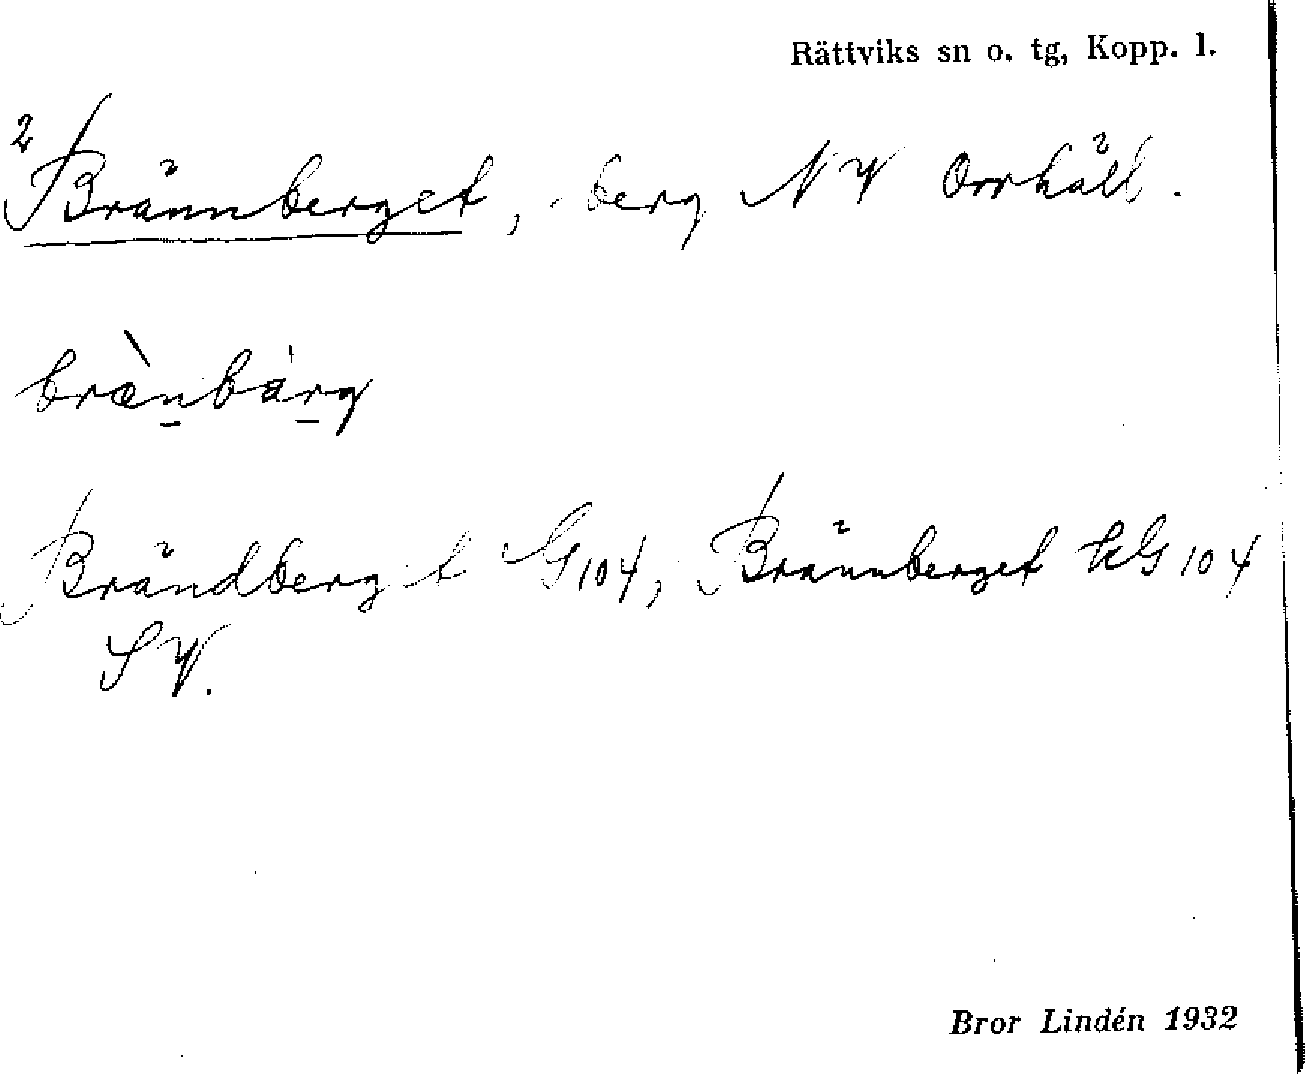 Rättviks sn o. tg, Kopp. l.
2 Brännberget, berg NV Orrhåll.
brænbärg
Brändberget G104, Brännberget hG 104
SV.
Bror Lindén 1932